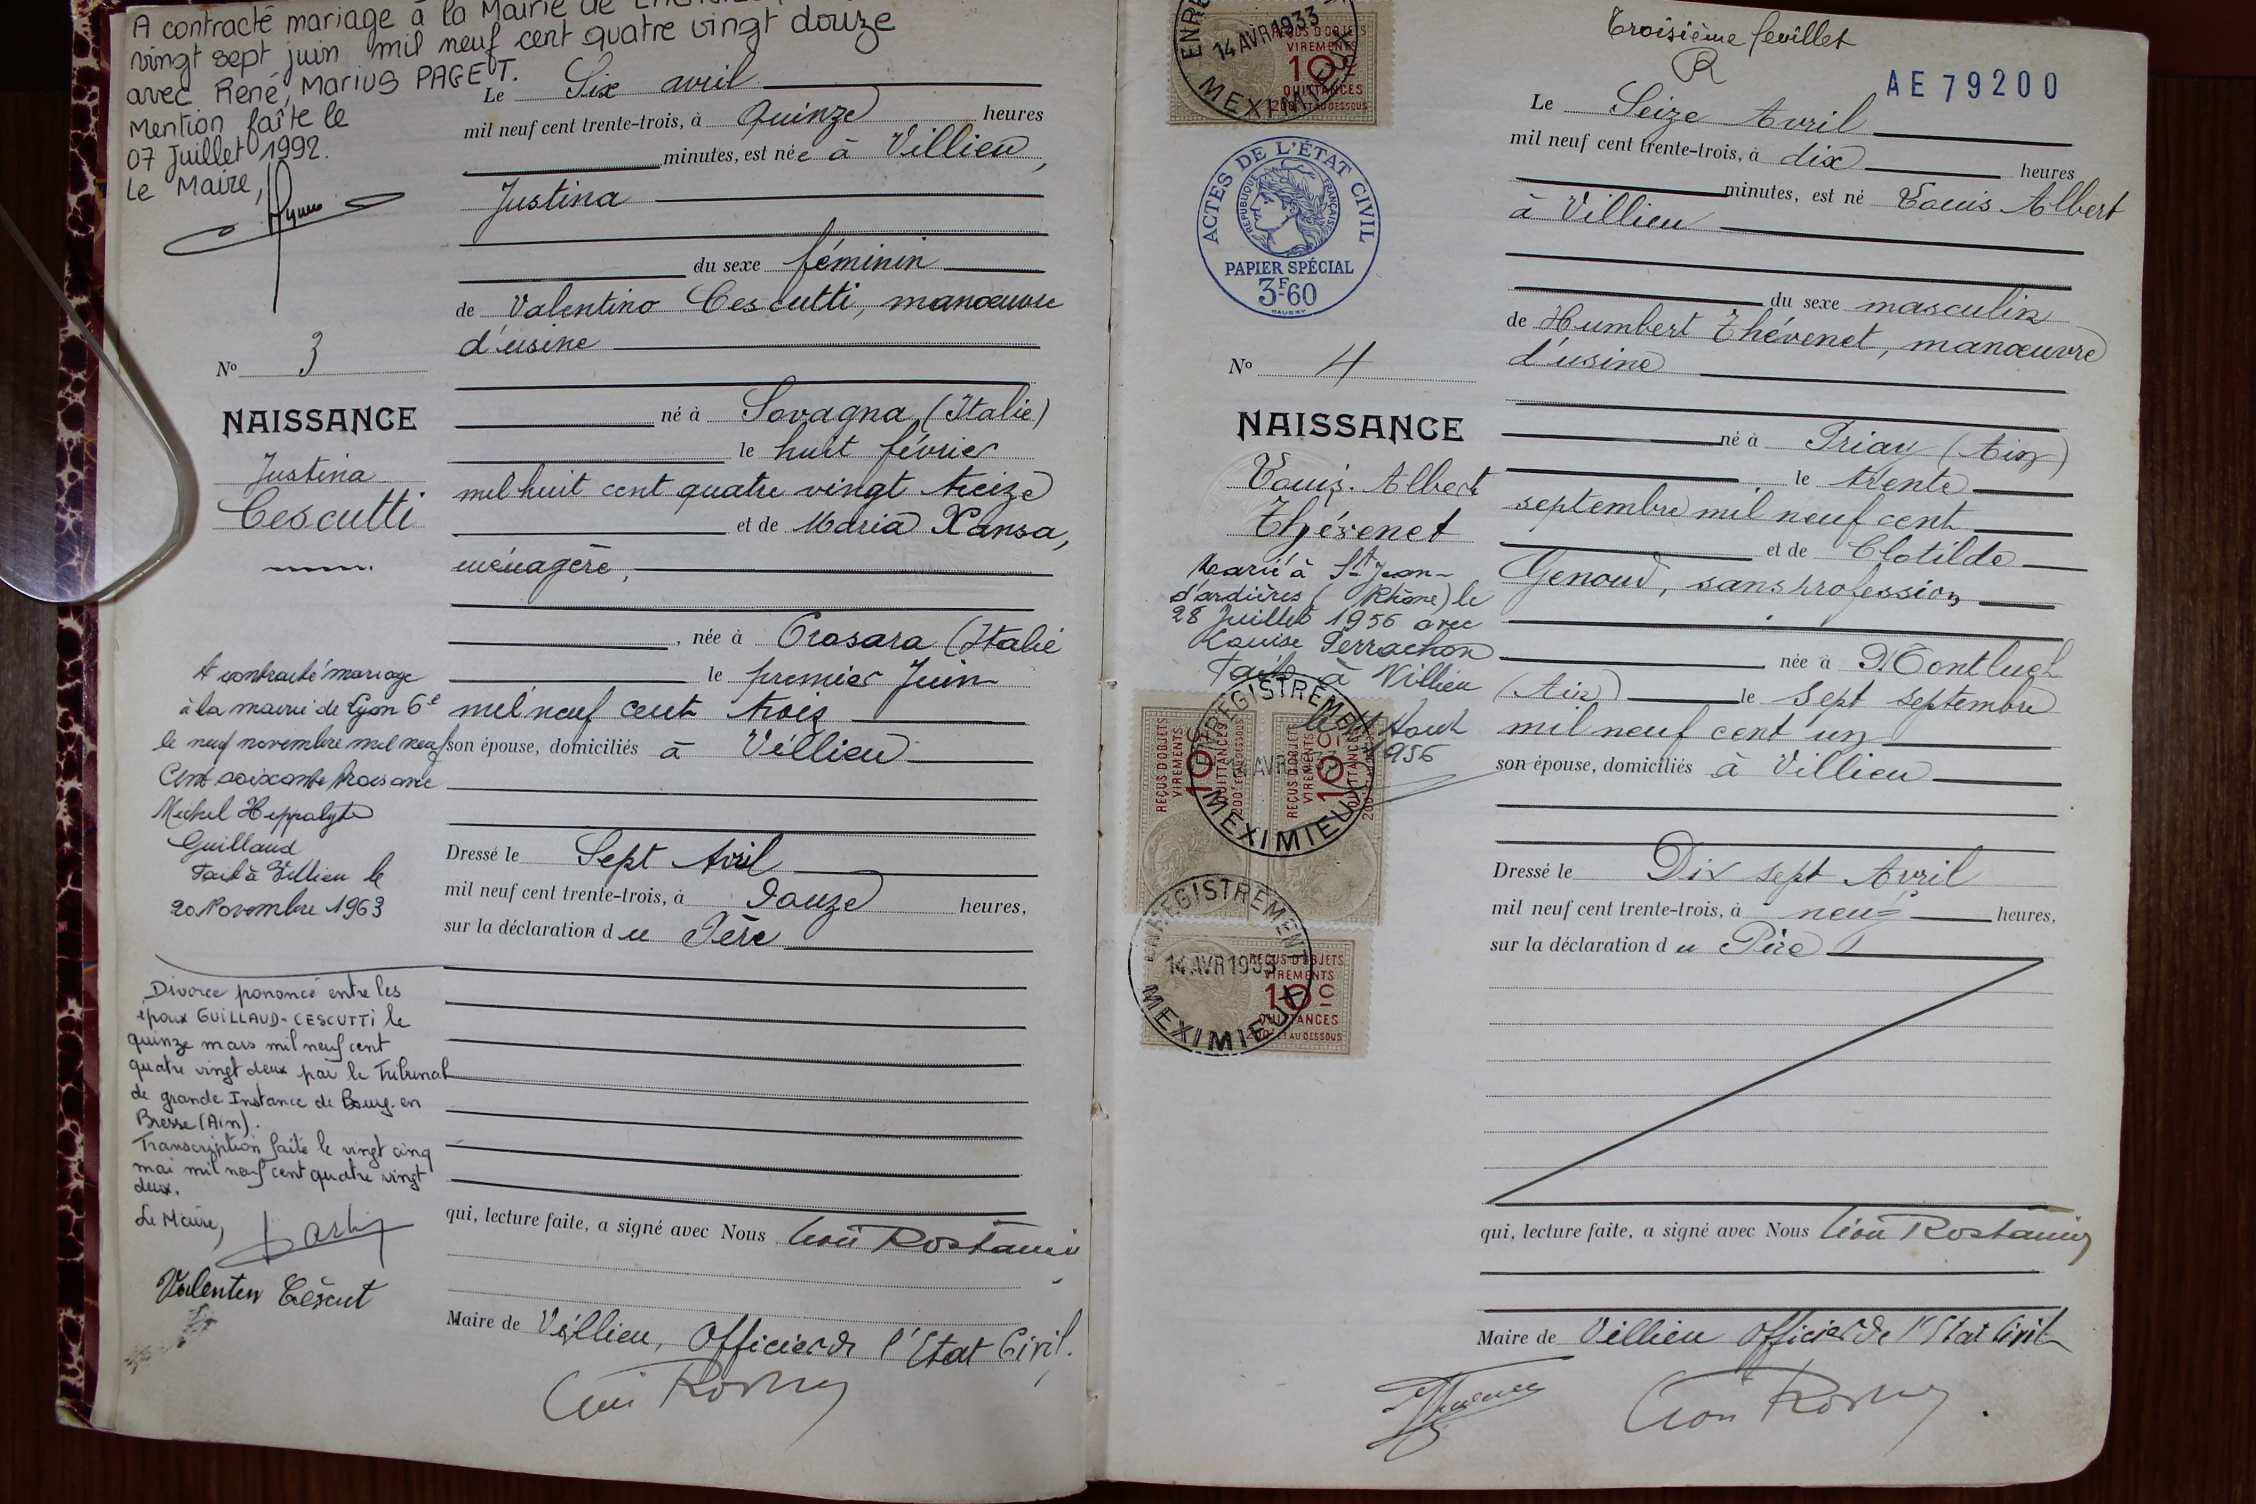 A contracté mariage à la Mairie de
vingt sept juin mil neuf cent quatre vingt douze
avec René, Marius PAGET.
Mention faite le
07 Juillet 1992.
Le Maire,
Le Six avril
mil neuf cent trente-trois, à Quinze heures
minutes, est née à Villieu,
Justina
du sexe féminin
de Valentino Cescutti, manœuvre
d'usine
né à Sovagna (Italie)
le huit février
mil huit cent quatre vingt treize
et de Maria Xansa,
ménagère,
, née à Crosara (Italie
le premier Juin
mil neuf cent trois
son épouse, domiciliés à Villieu
Dressé le Sept Avril
mil neuf cent trente-trois, à Douze heures,
sur la déclaration du Père
qui, lecture faite, a signé avec Nous Léon Rostaing
Maire de Villieu, Officier de l'Etat Civil.
No 3
NAISSANCE
Justina
Cescutti
A contracté mariage
à la mairie de Lyon 6e
le neuf novembre mil neuf
Cent soixante trois avec
Michel Hippolyte
Guillaud
Fait à Villieu le
20 Novembre 1963
Divorce prononcé entre les
époux GUILLAUD-CESCUTTI le
quinze mars mil neuf cent
quatre vingt deux par le Tribunal
de grande Instance de Bourg-en
Bresse (Ain).
Transcription faite le vingt cinq
mai mil neuf cent quatre vingt
deux.
Le Maire,
Valenten Céscut
Troisième feuillet
AE 79200
14 AVR 1933
MEXIMIEUX
REÇUS D'OBJETS
VIREMENTS
10c
QUITTANCES
200F ET AU DESSOUS
ACTES DE L'ÉTAT CIVIL
RÉPUBLIQUE FRANÇAISE
PAPIER SPÉCIAL
3F60
Le Seize Avril
mil neuf cent trente-trois, à dix heures
minutes, est né Louis Albert
à Villieu
du sexe masculin
de Humbert Thévenet, manœuvre
d'usine
né à Priay (Ain)
le trente
septembre mil neuf cent
et de Clotilde
Genoud, sans profession
née à Montluel
(Ain) le sept septembre
mil neuf cent un
son épouse, domiciliés à Villieu
Dressé le Dix sept Avril
mil neuf cent trente-trois, à neuf heures,
sur la déclaration du Père
qui, lecture faite, a signé avec Nous Léon Rostaing
Maire de Villieu Officier de l'Etat Civil
No 4
NAISSANCE
Louis. Albert
Thévenet
Marié à St Jean-
d'ardières (Rhône) le
28 Juillet 1956 avec
Louise Perrachon
Fait à Villieu
Août
1956
ENREGISTREMENT
MEXIMIEUX
REÇUS D'OBJETS
VIREMENTS
10c
QUITTANCES
200F ET AU DESSOUS
REÇUS D'OBJETS
VIREMENTS
10c
QUITTANCES
ENREGISTREMENT
14 AVR 1933
MEXIMIEUX
REÇUS D'OBJETS
VIREMENTS
10c
QUITTANCES
200F ET AU DESSOUS